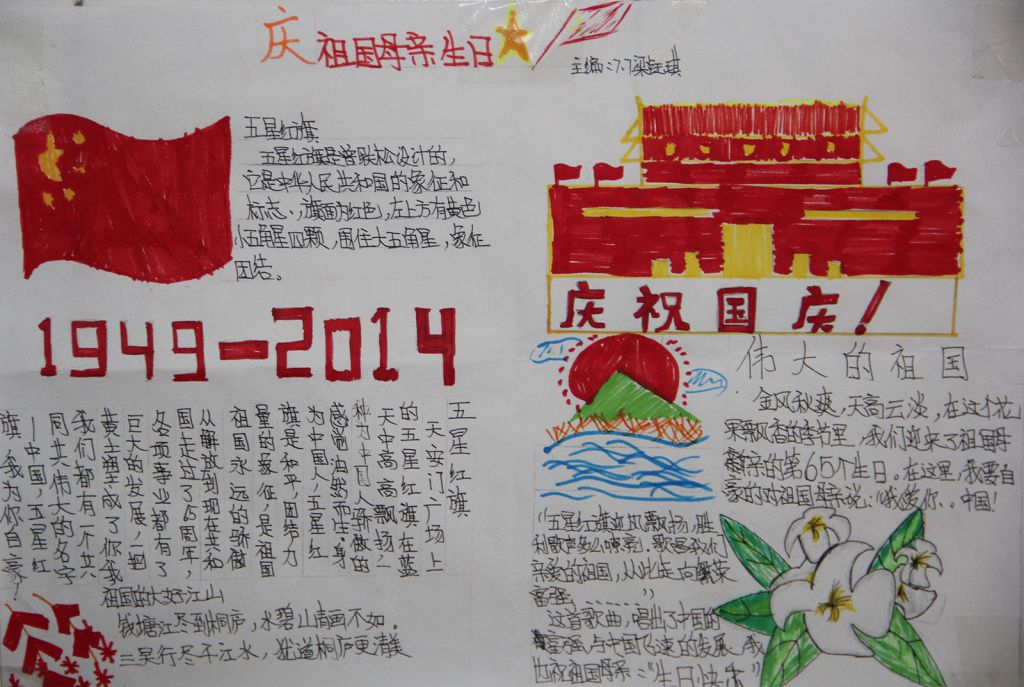 庆祖国母亲生日
主编:7.7梁
五星红旗
五星红旗是曾联松设计的,
它是中华人民共和国的象征和
标志、旗面为红色,左上方有黄色
小五角星四颗,围住大五角星,象征
团结。
1949-2014
庆祝国庆!
伟大的祖国
金风秋爽,天高云淡,在这个花
果飘香的季节里,我们迎来了祖国母
亲的第65个生日。在这里,我要自
豪的对祖国母亲说:"我爱你、中国!
"五星红旗迎风飘扬,胜
利歌声多么嘹亮.歌唱我们
亲爱的祖国,从此走向繁荣
富强. ……"
这首歌曲,唱出了中国的
富强,与中国飞速的发展.我
也祝祖国母亲:"生日快乐"
五星红旗
天安门广场上
的五星红旗在蓝
天中高高飘扬,一
种为中国人骄傲的
感情油然而生.身
为中国人,五星红
旗是和平,团结力
量的象征,是祖国
祖国永远的骄傲
从解放到现在共和
国走过了65周年,
各项事业都有了
巨大的发展,一把
黄土塑成了你我
我们都有一个共
同共伟大的名字
—中国,五星红
旗,我为你自豪!
祖国的大好江山
钱塘江尽到桐庐,水碧山青画不如.
三吴行尽千江水,犹道桐庐更清美